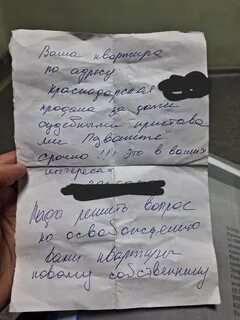 Ваша квартира
по адресу
Краснодарская
продана за долги
судебными пристава
ми Позвоните
срочно !!! Это в ваших
интересах
Надо решить вопрос
по освобождению
вами квартиры
новому собственнику